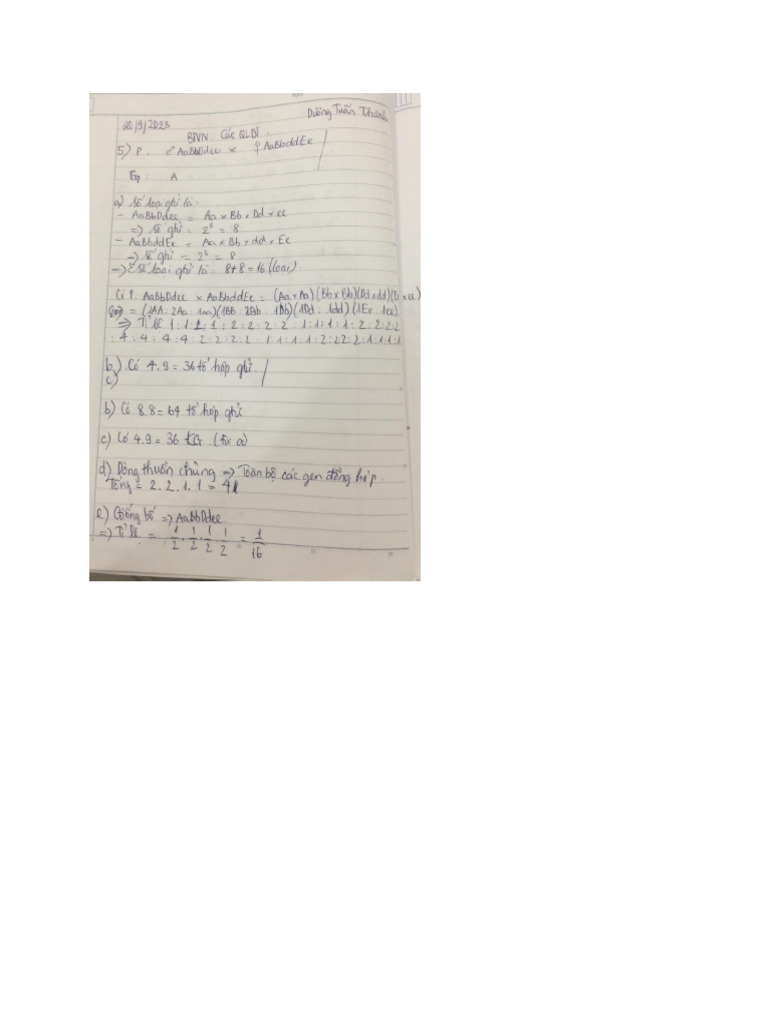 Dương Tuấn Thành
20/9/2023
BTVN. Các QLDT.
5) P. ♂ AaBbDdee × ♀ AaBbddEe
Gp: A
a) Số loại gtử là:
- AaBbDdee = Aa × Bb × Dd × ee
=> Số gtử = 2³ = 8
- AaBbddEe = Aa × Bb × dd × Ee
=> Số gtử = 2³ = 8
=> Σ Số loại gtử là: 8+8 = 16 (loại).
Có P. AaBbDdee × AaBbddEe = (Aa × Aa)(Bb × Bb)(Dd × dd)
= (1AA : 2Aa : 1aa)(1BB : 2Bb : 1bb)(1Dd : 1dd)(1Ee : 1ee)
=> Tỉ lệ 1:1:2:1:2:2:2:2:1:1:1:1:2:2:2:2
:4:4:4:4:2:2:2:2:1:1:1:1:2:2:2:2:1:1:1:1
b) Có 4.9 = 36 tổ hợp gtử.
c)
b) Có 8.8 = 64 tổ hợp gtử
c) Có 4.9 = 36 KG. (từ a)
d) Dòng thuần chủng => Toàn bộ các gen đồng hợp.
Tổng = 2.2.1.1 = 4
e) Giống bố => AaBbDdee
=> Tỉ lệ = 1/2 . 1/2 . 1/2 . 1/2 = 1/16